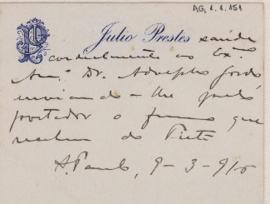 AG.1.1.151
Julio Prestes saúda
cordealmente ao Ex.
Am.º Dr. Adolpho Gordo
enviando-lhe pelo
portador o fumo que
recebeu do Tietê
S. Paulo, 9-3-916